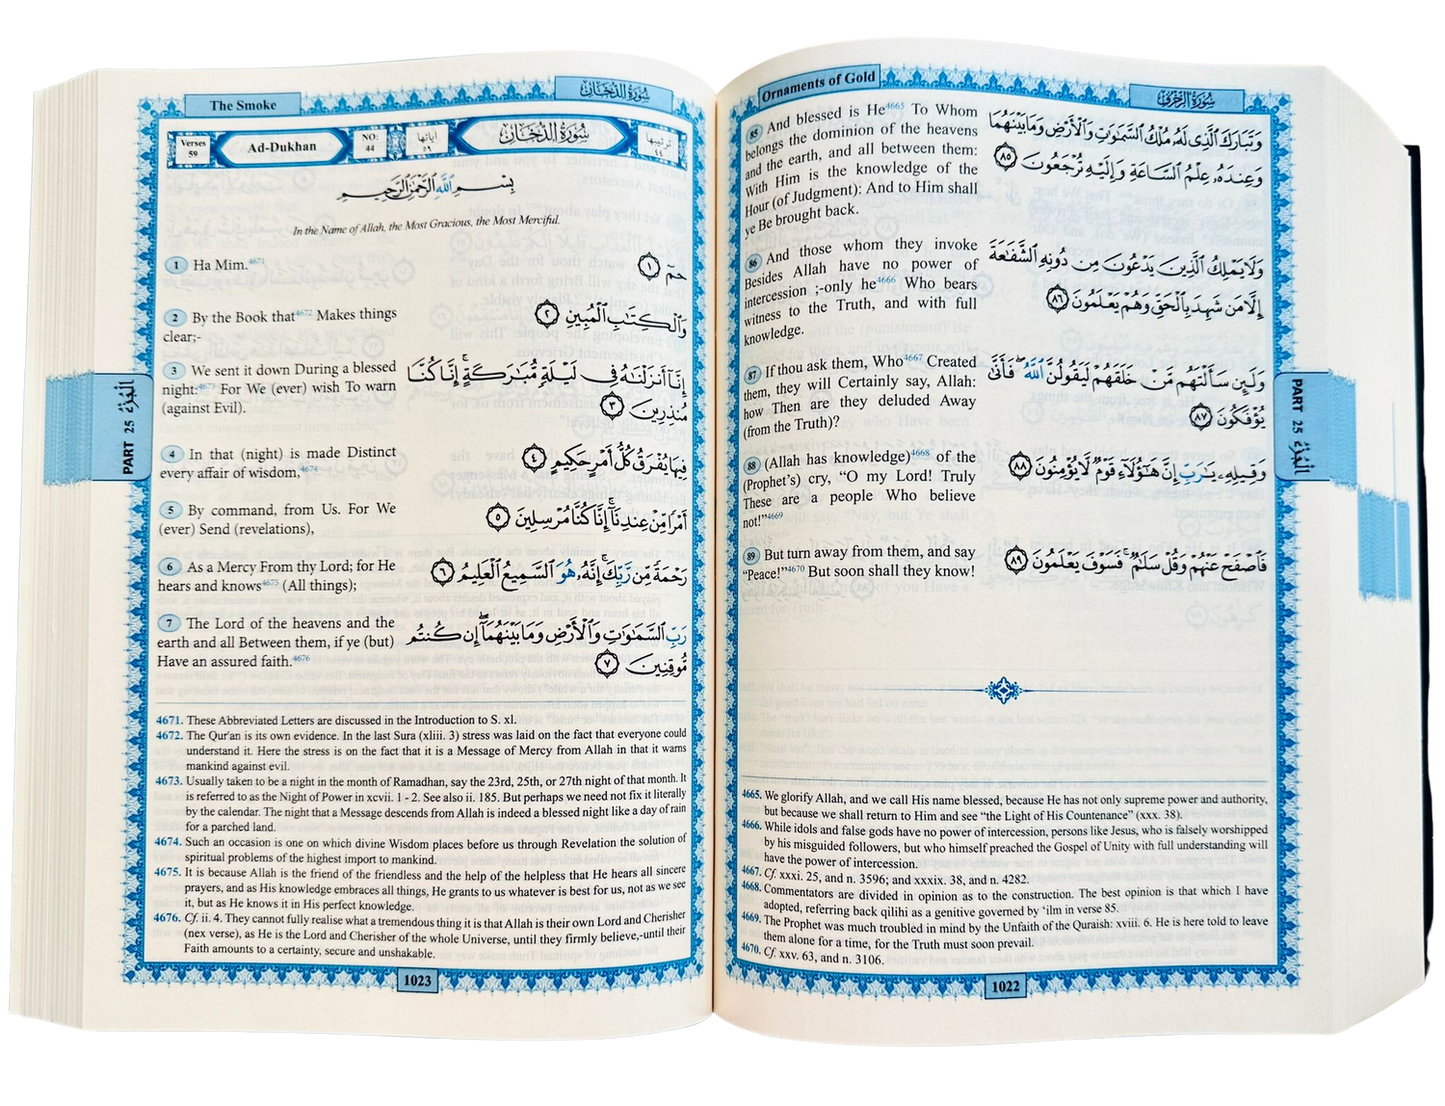 Ornaments of Gold
سُورَةُ الزُّخْرُفِ
85 And blessed is He4665 To Whom
belongs the dominion of the heavens
and the earth, and all between them:
With Him is the knowledge of the
Hour (of Judgment): And to Him shall
ye Be brought back.
وَتَبَارَكَ ٱلَّذِى لَهُۥ مُلْكُ ٱلسَّمَٰوَٰتِ وَٱلْأَرْضِ وَمَا بَيْنَهُمَا
وَعِندَهُۥ عِلْمُ ٱلسَّاعَةِ وَإِلَيْهِ تُرْجَعُونَ ٨٥
86 And those whom they invoke
Besides Allah have no power of
intercession ;-only he4666 Who bears
witness to the Truth, and with full
knowledge.
وَلَا يَمْلِكُ ٱلَّذِينَ يَدْعُونَ مِن دُونِهِ ٱلشَّفَٰعَةَ
إِلَّا مَن شَهِدَ بِٱلْحَقِّ وَهُمْ يَعْلَمُونَ ٨٦
87 If thou ask them, Who4667 Created
them, they will Certainly say, Allah:
how Then are they deluded Away
(from the Truth)?
وَلَئِن سَأَلْتَهُم مَّنْ خَلَقَهُمْ لَيَقُولُنَّ ٱللَّهُ ۖ فَأَنَّىٰ
يُؤْفَكُونَ ٨٧
88 (Allah has knowledge)4668 of the
(Prophet's) cry, “O my Lord! Truly
These are a people Who believe
not!”4669
وَقِيلِهِۦ يَٰرَبِّ إِنَّ هَٰٓؤُلَآءِ قَوْمٌ لَّا يُؤْمِنُونَ ٨٨
89 But turn away from them, and say
“Peace!”4670 But soon shall they know!
فَٱصْفَحْ عَنْهُمْ وَقُلْ سَلَٰمٌ ۚ فَسَوْفَ يَعْلَمُونَ ٨٩
PART 25 الْجُزْءُ
4665. We glorify Allah, and we call His name blessed, because He has not only supreme power and authority,
but because we shall return to Him and see “the Light of His Countenance” (xxx. 38).
4666. While idols and false gods have no power of intercession, persons like Jesus, who is falsely worshipped
by his misguided followers, but who himself preached the Gospel of Unity with full understanding will
have the power of intercession.
4667. Cf. xxxi. 25, and n. 3596; and xxxix. 38, and n. 4282.
4668. Commentators are divided in opinion as to the construction. The best opinion is that which I have
adopted, referring back qilihi as a genitive governed by ‘ilm in verse 85.
4669. The Prophet was much troubled in mind by the Unfaith of the Quraish: xviii. 6. He is here told to leave
them alone for a time, for the Truth must soon prevail.
4670. Cf. xxv. 63, and n. 3106.
1022
The Smoke
سُورَةُ الدُّخَانِ
Verses 59
Ad-Dukhan
NO: 44
آياتها ٥٩
سُورَةُ الدُّخَانِ
ترتيبها ٤٤
بِسْمِ ٱللَّهِ ٱلرَّحْمَٰنِ ٱلرَّحِيمِ
In the Name of Allah, the Most Gracious, the Most Merciful.
1 Ha Mim.4671
حمٓ ١
2 By the Book that4672 Makes things
clear;-
وَٱلْكِتَٰبِ ٱلْمُبِينِ ٢
3 We sent it down During a blessed
night:4673 For We (ever) wish To warn
(against Evil).
إِنَّآ أَنزَلْنَٰهُ فِى لَيْلَةٍ مُّبَٰرَكَةٍ ۚ إِنَّا كُنَّا
مُنذِرِينَ ٣
4 In that (night) is made Distinct
every affair of wisdom,4674
فِيهَا يُفْرَقُ كُلُّ أَمْرٍ حَكِيمٍ ٤
5 By command, from Us. For We
(ever) Send (revelations),
أَمْرًا مِّنْ عِندِنَآ ۚ إِنَّا كُنَّا مُرْسِلِينَ ٥
6 As a Mercy From thy Lord; for He
hears and knows4675 (All things);
رَحْمَةً مِّن رَّبِّكَ ۚ إِنَّهُۥ هُوَ ٱلسَّمِيعُ ٱلْعَلِيمُ ٦
7 The Lord of the heavens and the
earth and all Between them, if ye (but)
Have an assured faith.4676
رَبِّ ٱلسَّمَٰوَٰتِ وَٱلْأَرْضِ وَمَا بَيْنَهُمَآ ۖ إِن كُنتُم
مُّوقِنِينَ ٧
PART 25 الْجُزْءُ
4671. These Abbreviated Letters are discussed in the Introduction to S. xl.
4672. The Qur'an is its own evidence. In the last Sura (xliii. 3) stress was laid on the fact that everyone could
understand it. Here the stress is on the fact that it is a Message of Mercy from Allah in that it warns
mankind against evil.
4673. Usually taken to be a night in the month of Ramadhan, say the 23rd, 25th, or 27th night of that month. It
is referred to as the Night of Power in xcvii. 1 - 2. See also ii. 185. But perhaps we need not fix it literally
by the calendar. The night that a Message descends from Allah is indeed a blessed night like a day of rain
for a parched land.
4674. Such an occasion is one on which divine Wisdom places before us through Revelation the solution of
spiritual problems of the highest import to mankind.
4675. It is because Allah is the friend of the friendless and the help of the helpless that He hears all sincere
prayers, and as His knowledge embraces all things, He grants to us whatever is best for us, not as we see
it, but as He knows it in His perfect knowledge.
4676. Cf. ii. 4. They cannot fully realise what a tremendous thing it is that Allah is their own Lord and Cherisher
(nex verse), as He is the Lord and Cherisher of the whole Universe, until they firmly believe,-until their
Faith amounts to a certainty, secure and unshakable.
1023